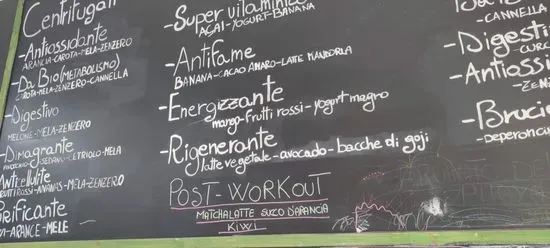 Centrifugati
-Antiossidante
ARANCIA-CAROTA-MELA-ZENZERO
-Da Bio (METABOLISMO)
CAROTA-MELA-ZENZERO-CANNELLA
-Digestivo
MELONE-MELA-ZENZERO
-Dimagrante
SEDANO-CETRIOLO-MELA
Anticellulite
FRUTTI ROSSI-ANANAS-MELA-ZENZERO
rificante
-ARANCE-MELE
-Super vitaminico
AÇAI-YOGURT-BANANA
-Antifame
BANANA-CACAO AMARO-LATTE MANDORLA
-Energizzante
mango-frutti rossi-yogurt magro
-Rigenerante
latte vegetale-avocado-bacche di goji
POST-WORKOUT
MATCHALATTE SUCCO D'ARANCIA
KIWI
-CANNELLA
-Digesti
CURC
-Antiossi
ZEN
-Brucia
-peperonci